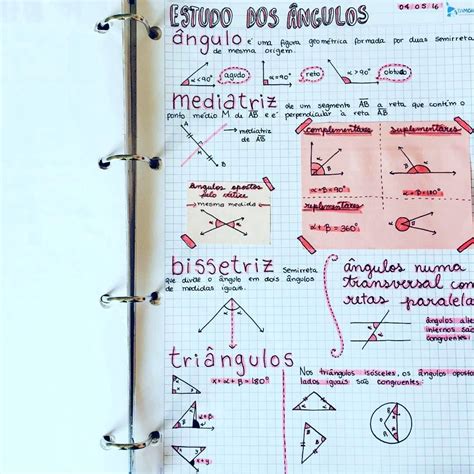 ESTUDO DOS ÂNGULOS
04.05.16
ângulo é uma figura geométrica formada por duas semirretas
de mesma origem.
α<90° agudo
α=90° reto
α>90° obtuso
mediatriz de um segmento AB a reta que contém o
ponto médio M de AB e é perpendicular à reta AB
mediatriz
de AB
A
M
B
complementares
α+β=90°
suplementares
α+β=180°
replementares
α+β=360°
ângulos opostos
pelo vértice
mesma medida
bissetriz semirreta
que divide o ângulo em dois ângulos
de medidas iguais.
ângulos numa
transversal com
retas paralela
ângulos alte
internos são
congruentes
triângulos
α+α+β=180°
α+β
x+y
Nos triângulos isósceles, os ângulos opostos
lados iguais são congruentes.